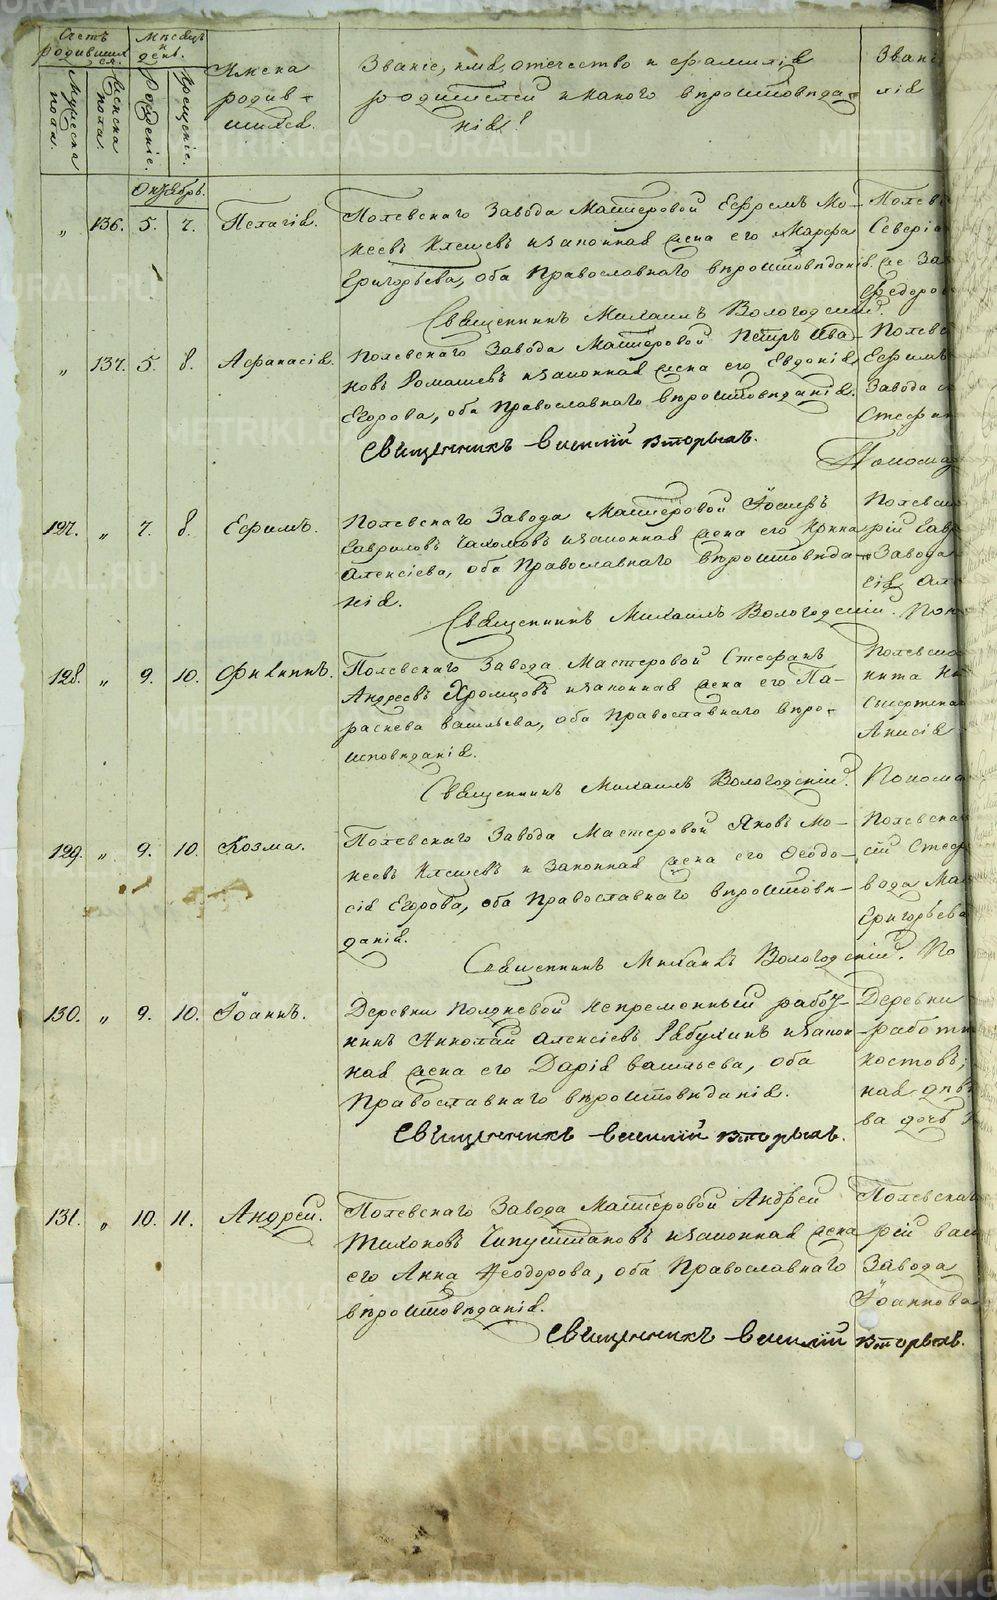 Счетъ родившихся.
Мѣсяцъ и день.
Имена родив-
шихся.
Званіе, имя, отчество и фамилія
родителей и какого вѣроисповѣда-
нія.
Званіе
лія
Мужеска пола.
Женска пола.
Рожденіе.
Крещеніе.
Октябрь.
„ 136. 5. 7. Пелагія.
Полевскаго Завода Мастеровой Ефремъ Мо-
кеевъ Клещевъ и законная жена его Марфа
Григорьева, оба Православнаго вѣроисповѣданія.
Священникъ Михаилъ Вологодскій.
Полев
Севері
же Зав
Федоров
„ 137. 5. 8. Афанасія.
Полевскаго Завода Мастеровой Петръ Ива-
новъ Ромашевъ и законная жена его Евдокія
Егорова, оба Православнаго вѣроисповѣданія.
Священникъ Василій Вторыхъ.
Полевс
Ефимъ
Завода
Стефан
Понома
127. „ 7. 8. Ефимъ.
Полевскаго Завода Мастеровой Іосифъ
Гавриловъ Чахомовъ и законная жена его Ирина
Алексіева, оба Православнаго вѣроисповѣда-
нія.
Священникъ Михаилъ Вологодскій.
Полевска
рій Гавр
Завода
сія Але
Пон
128. „ 9. 10. Филиппъ.
Полевскаго Завода Мастеровой Стефанъ
Андреевъ Хромцовъ и законная жена его Па-
раскева Васильева, оба Православнаго вѣро-
исповѣданія.
Священникъ Михаилъ Вологодскій.
Полевска
кита
Сысертска
Анисія
Понома
129. „ 9. 10. Козма.
Полевскаго Завода Мастеровой Яковъ Мо-
кеевъ Клещевъ и Законная жена его Феодо-
сія Егорова, оба Православнаго вѣроисповѣ-
данія.
Священникъ Михаилъ Вологодскій.
Полевска
сій Стеф
вода Ма
Григорьева
По
130. „ 9. 10. Іоаннъ.
Деревни Полдневой Непременный работ-
никъ Николай Алексіевъ Рябухинъ и закон-
ная жена его Дарія Васильева, оба
Православнаго вѣроисповѣданія.
Священникъ Василій Вторыхъ.
Деревни
работни
костовъ;
ная дѣв
ва дочь
131. „ 10. 11. Андрей.
Полевскаго Завода Мастеровой Андрей
Тихоновъ Чипуштановъ и законная жена
его Анна Феодорова, оба Православнаго
вѣроисповѣданія.
Священникъ Василій Вторыхъ.
Полевскаг
рей Вас
Завода
Іоаннова
METRIKI.GASO-URAL.RU